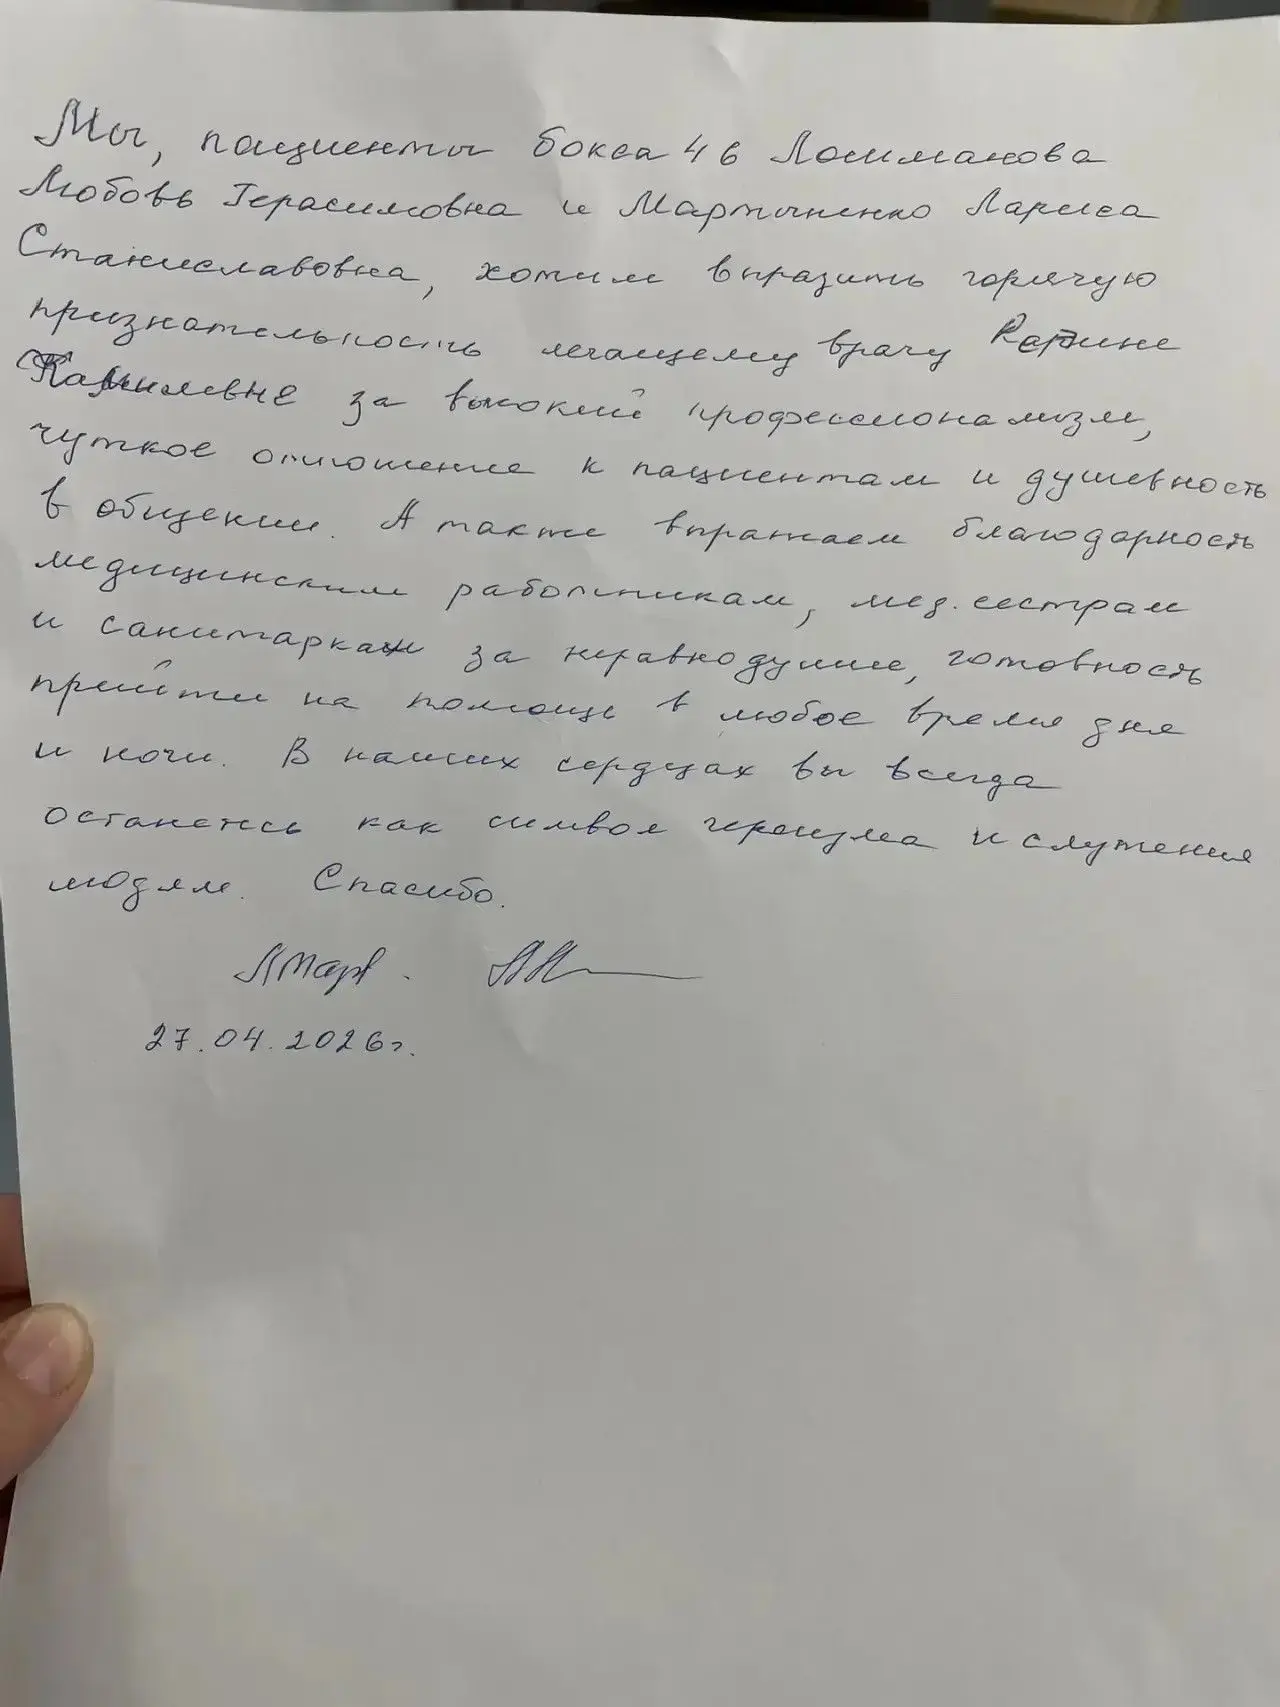 Мы, пациенты бокса 46 Лошманова
Любовь Герасимовна и Мартыненко Лариса
Станиславовна, хотим выразить горячую
признательность лечащему врачу
Камилевне за высокий профессионализм,
чуткое отношение к пациентам и душевность
в общении. А также выражаем благодарность
медицинским работникам, мед. сестрам
и санитаркам за неравнодушие, готовность
прийти на помощь в любое время дня
и ночи. В наших сердцах вы всегда
останетесь как символ героизма и служения
людям. Спасибо.
27.04.2026г.